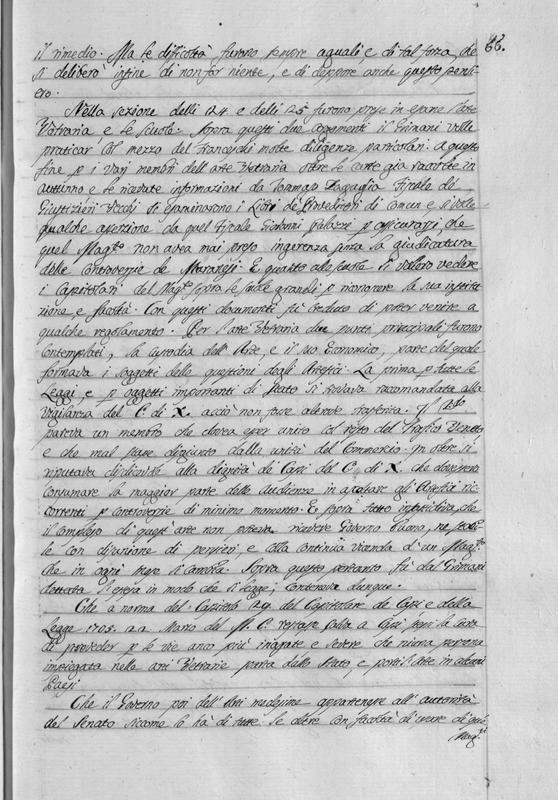 66.
il rimedio. Ma le difficoltà furono sempre aguali, e di tal forza, che
si deliberò infine di non far niente, e di deporre anche questo pensi-
ero.
Nella sezione delli 124 e delli 125 furono prese in esame l'arte
Vetraria e le scuole. Sopra questi due argomenti il Grimani volle
praticar col mezzo del Franceschi molte diligenze particolari. A questo
fine p i varj membri dell'arte Vetraria oltre le carte già raccolte in
autunno e le ricevute informazioni da Tommaso Fiscale de
Giustizieri Vecchi si esaminarono i Libri de Proveditori di Comun e si volle
qualche aserzione da quel Fiscale Giovanni Palazzi p assicurarsi, che
quel Mag.to non avea mai preso ingerenza senza la giudicatura
delle controversie de Marangj. E quanto alle scuole si vollero vedere
i Capitolari del Mag.to sopra le scuole grandi, p riconoscere la sua institu-
zione, e facoltà. Con questi documenti fù creduto di poter venire a
qualche regolamento. Per l'arte Vetraria due punti principali furono
contemplati, la custodia dell'Arte, e il suo Economico, parte del quale
formava i soggetti delle questioni degli Artefici. La prima p tutte le
Leggi e p oggetti importanti di Stato si trovava raccomandata alla
vigilanza del C. di X. acciò non fosse altrove trasferita. Il 2.do
pareva un membro che dovea esser unito col resto del Traffico Veneto
e che mal stasse disgiunto dalla unità del Commercio. In oltre si
riputava disdicevole alla dignità de Capi del C. di X. che dovessero
consumare la maggior parte delle Audienze in ascoltare gli Artefici ric-
correnti p controversie di minimo momento. E sopra tutto intendeva, che
il complesso di quest'arte non poteva ricevere Governo buono, ne stabi-
le con direzione di persone e colla continua vicenda d'un Mag.to
che in ogni mese si cambia. Sopra questo pertanto fù dal Grimani
dettata l'opera in modo che si legge; conteneva dunque.
Che a norma del Capitolo 29. del Capitolare de Capi e della
Legge 1705. 22. Marzo del M. C. restasse salva a Capi stessi la cura
di proveder p le vie anco più inusate e severe che niuna persona
impiegata nelle arti Vetrarie parta dallo Stato, e porti l'Arte in alieni
Paesi
Che il Governo poi dell'Arti medesime appartenere all'autorità
del Senato siccome lo hà di tutte le altre con facoltà di usare di que
Mag.ti